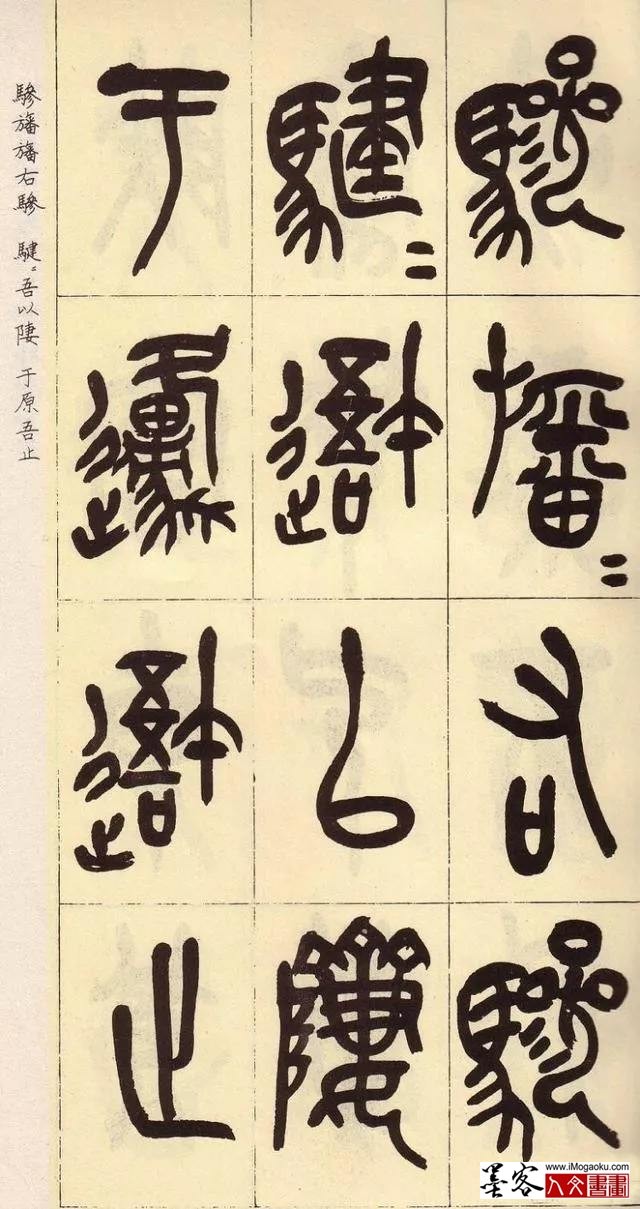 驂旛〻右驂
騝〻吾以隮
于原吾止
驂旛旛右驂 騝〻吾以隮 于原吾止
www.iMogaoku.com
墨客
人文書畫